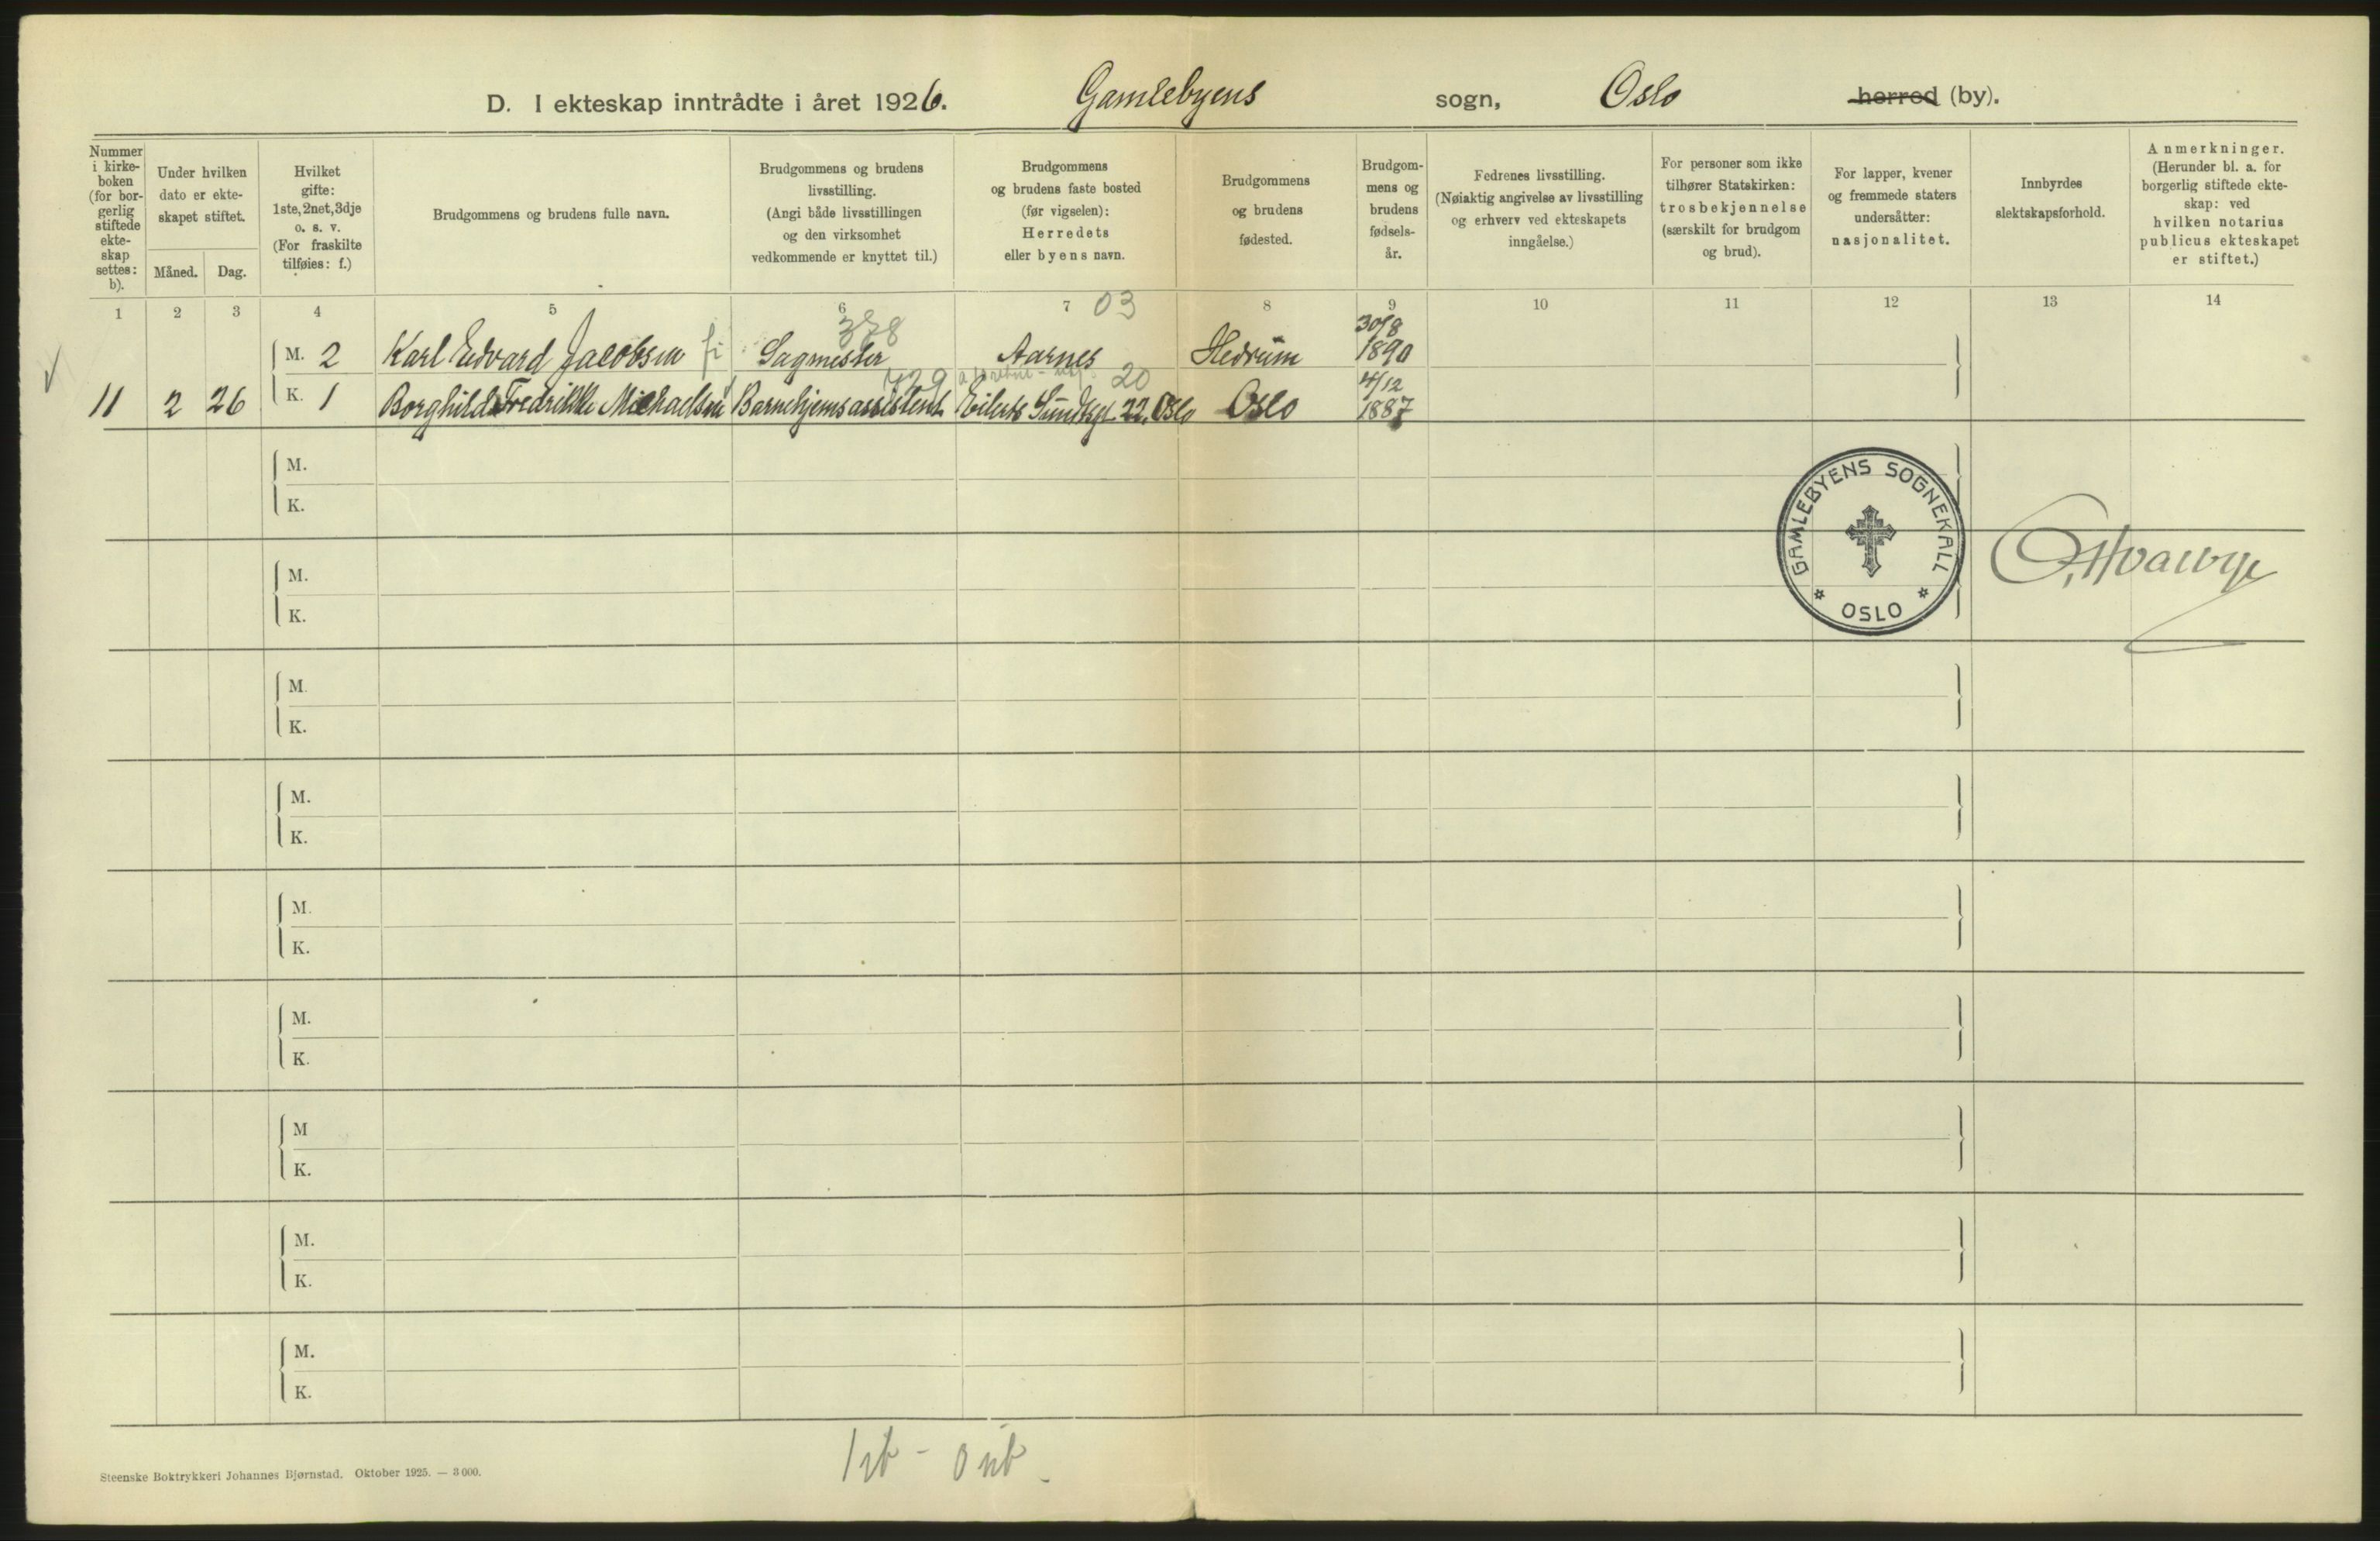 D. I ekteskap inntrådte i året 1926. Gamlebyens sogn, Oslo herred (by).
Nummer
i kirke-
boken
(for bor-
gerlig
stiftede
ekte-
skap
settes:
b).
Under hvilken
dato er ekte-
skapet stiftet.
Måned. Dag.
Hvilket
gifte:
1ste, 2net, 3dje
o. s. v.
(For fraskilte
tilføies: f.)
Brudgommens og brudens fulle navn.
Brudgommens og brudens
livsstilling.
(Angi både livsstillingen
og den virksomhet
vedkommende er knyttet til.)
Brudgommens
og brudens faste bosted
(før vigselen):
Herredets
eller byens navn.
Brudgommens
og brudens
fødested.
Brudgom-
mens og
brudens
fødsels-
år.
Fedrenes livsstilling.
(Nøiaktig angivelse av livsstilling
og erhverv ved ekteskapets
inngåelse.)
For personer som ikke
tilhører Statskirken:
trosbekjennelse
(særskilt for brudgom
og brud).
For lapper, kvener
og fremmede staters
undersåtter:
nasjonalitet.
Innbyrdes
slektskapsforhold.
Anmerkninger.
(Herunder bl. a. for
borgerlig stiftede ekte-
skap: ved
hvilken notarius
publicus ekteskapet
er stiftet.)
1 2 3 4 5 6 7 8 9 10 11 12 13 14
378 03 30/8
M. 2 Karl Edvard Jacobsen fi Sagmester Aarnes Hedrum 1890
729 20 4/12
11 2 26 K. 1 Borghild Fredrikke Michaelsen Barnehjemsassistent Eilerts Sundtsgt 22. Oslo Oslo 1887
M.
K.
GAMLEBYENS SOGNEKALL
* OSLO *
M.
K.
M.
K.
M.
K.
M.
K.
M.
K.
M
K.
M.
K.
M.
K.
Steenske Boktrykkeri Johannes Bjørnstad. Oktober 1925. — 3 000.